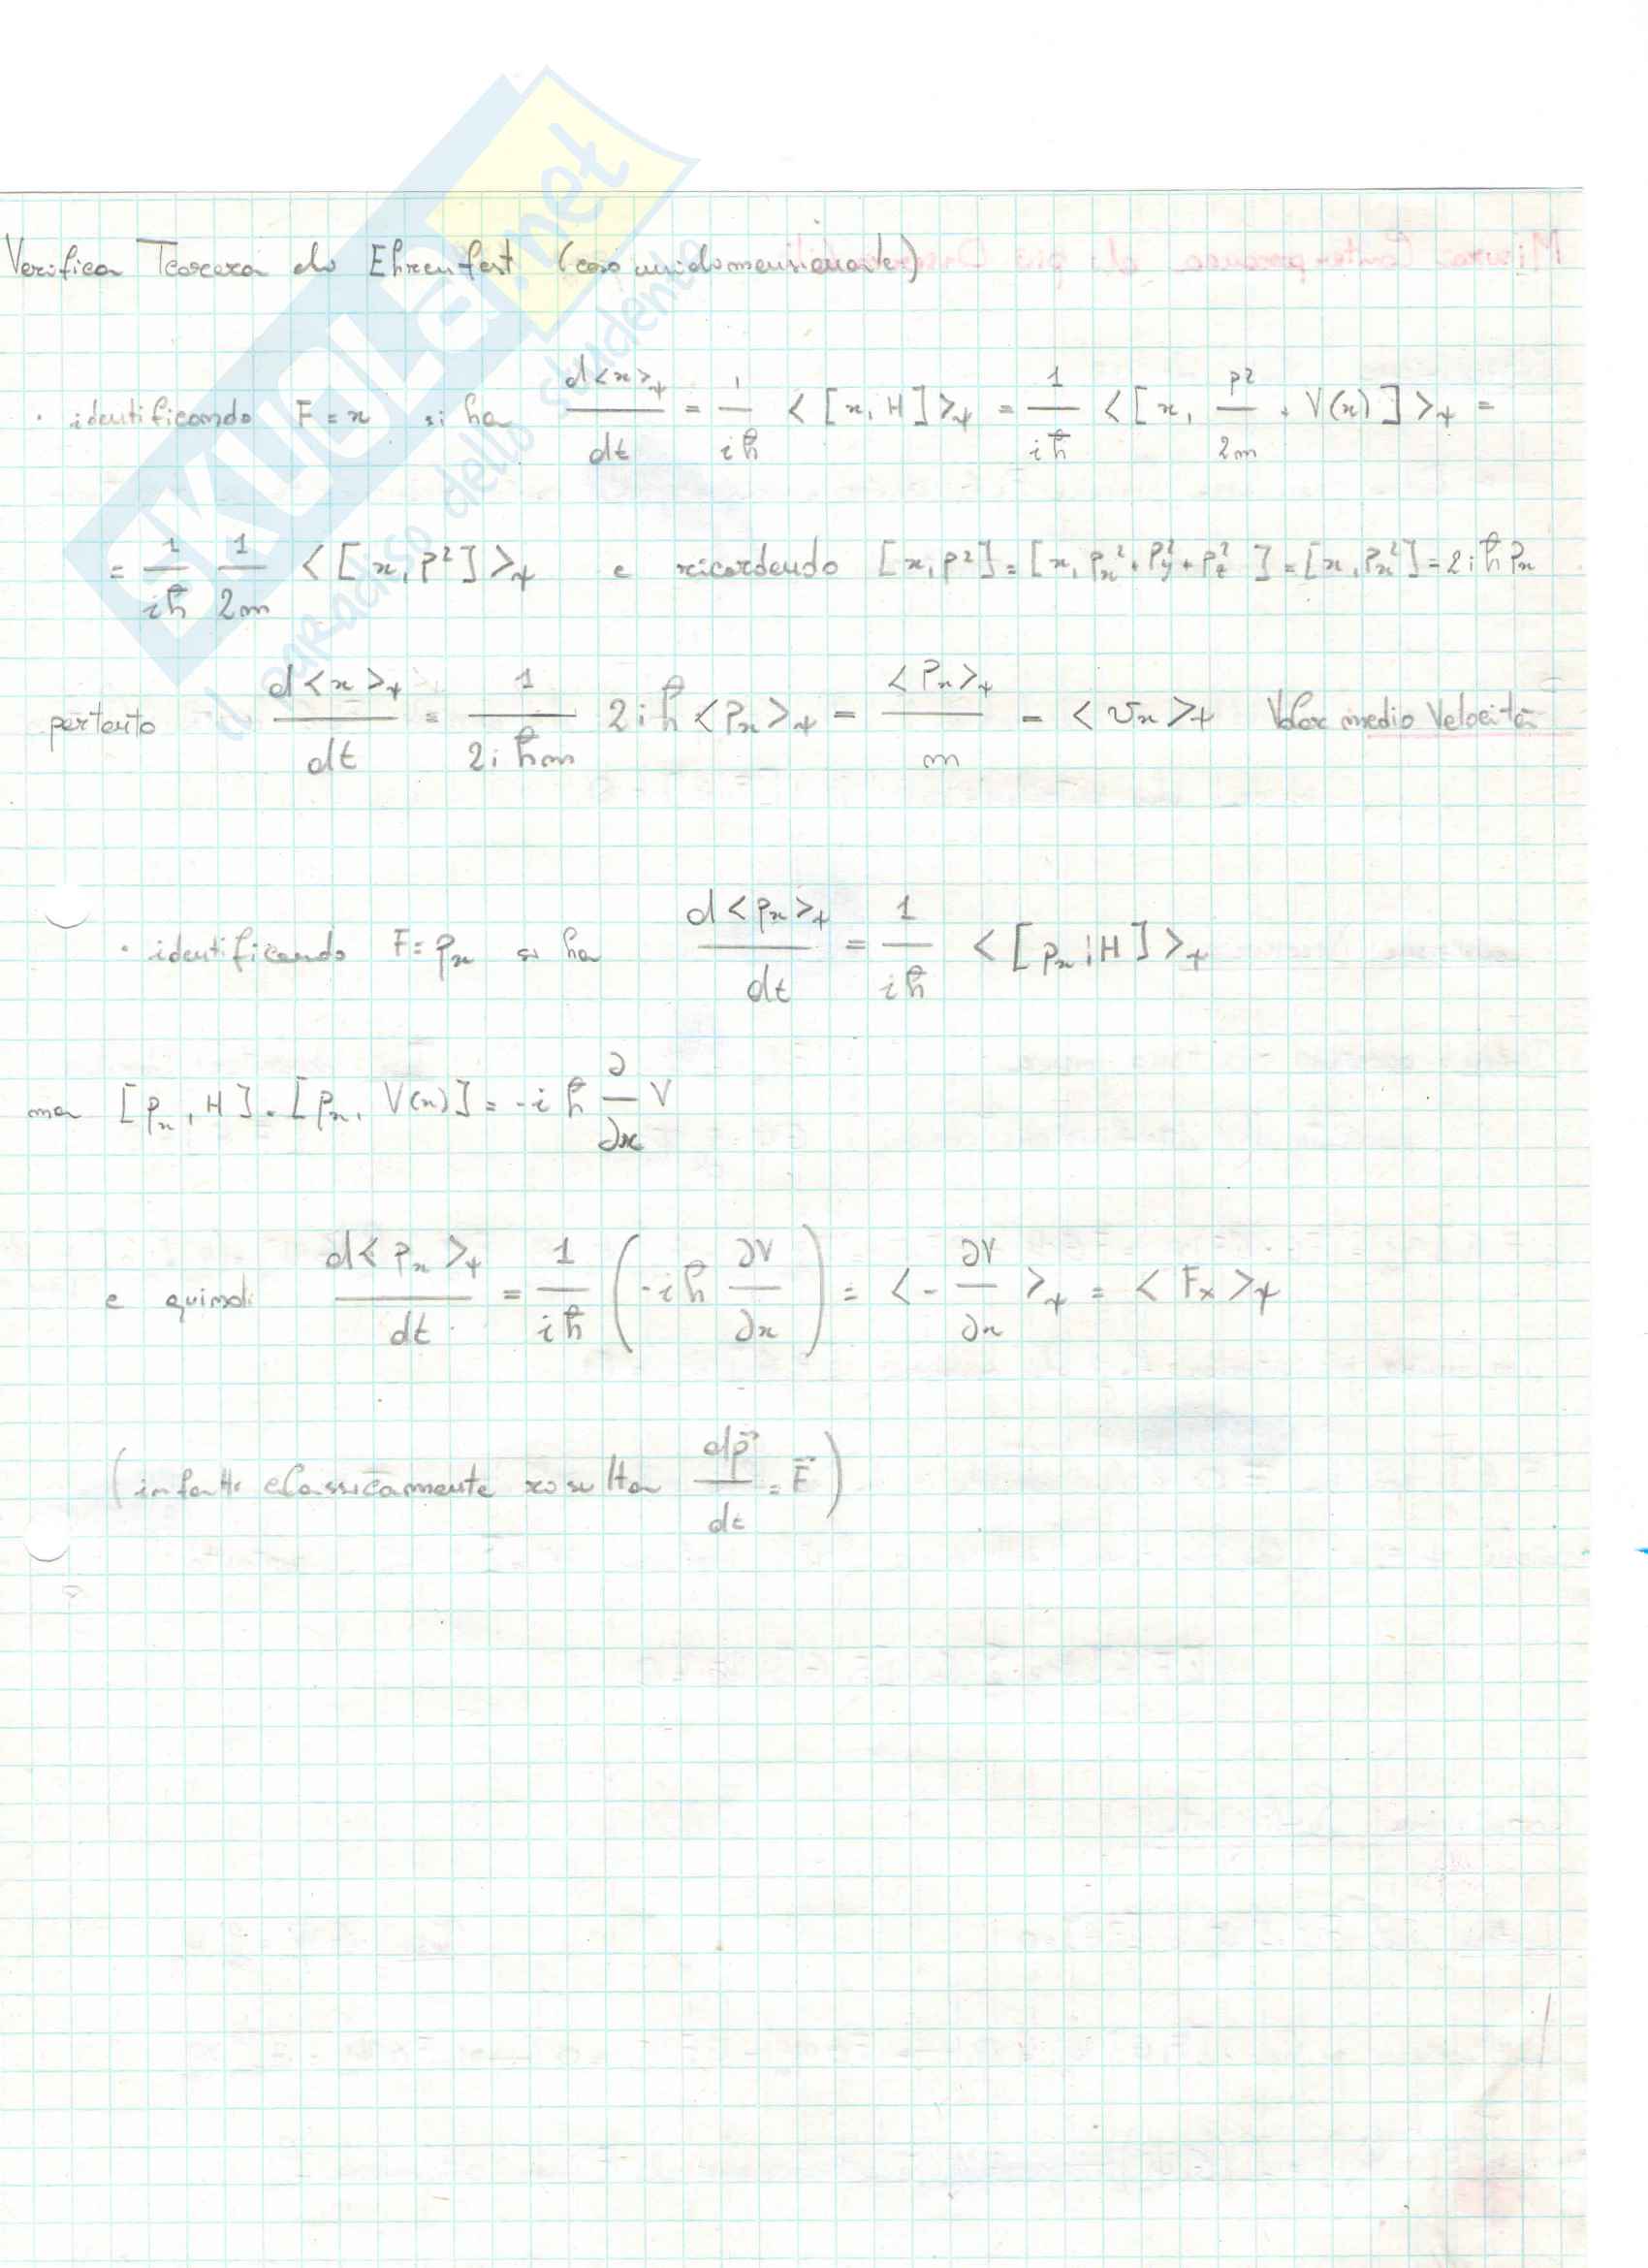 SKUOLA.net
il paradiso dello studente
Verifica Teorema di Ehrenfest (caso unidimensionale)
· identificando F = x si ha d<x>ψ/dt = 1/iħ <[x, H]>ψ = 1/iħ <[x, p²/2m + V(x)]>ψ =
= 1/iħ 1/2m <[x, p²]>ψ e ricordando [x, p²] = [x, px² + py² + pz²] = [x, px²] = 2iħ px
pertanto d<x>ψ/dt = 1/2iħm 2iħ <px>ψ = <px>ψ/m = <vx>ψ Valor medio Velocità
· identificando F = px si ha d<px>ψ/dt = 1/iħ <[px, H]>ψ
ma [px, H] = [px, V(x)] = -iħ ∂/∂x V
e quindi d<px>ψ/dt = 1/iħ (-iħ ∂V/∂x) = <-∂V/∂x>ψ = <Fx>ψ
(infatti classicamente risulta dp⃗/dt = F⃗)